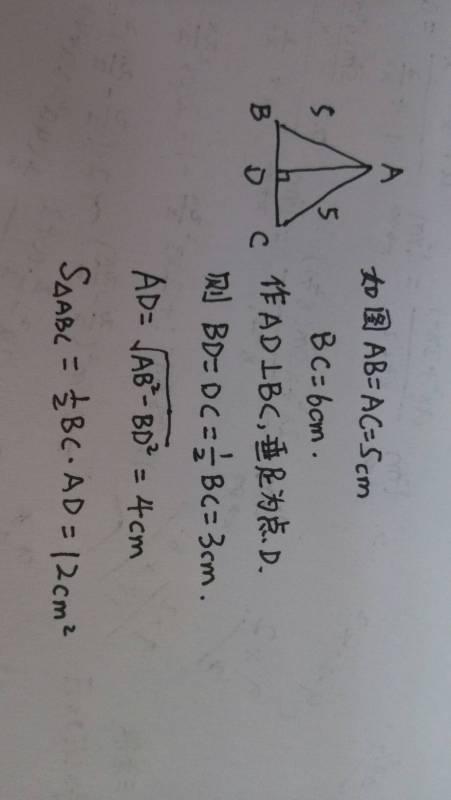 A
5
5
B
D
C
如图 AB=AC=5cm
BC=6cm.
作AD⊥BC,垂足为点D.
则 BD=DC=½BC=3cm.
AD=√(AB²-BD²)=4cm
S△ABC=½BC·AD=12cm²